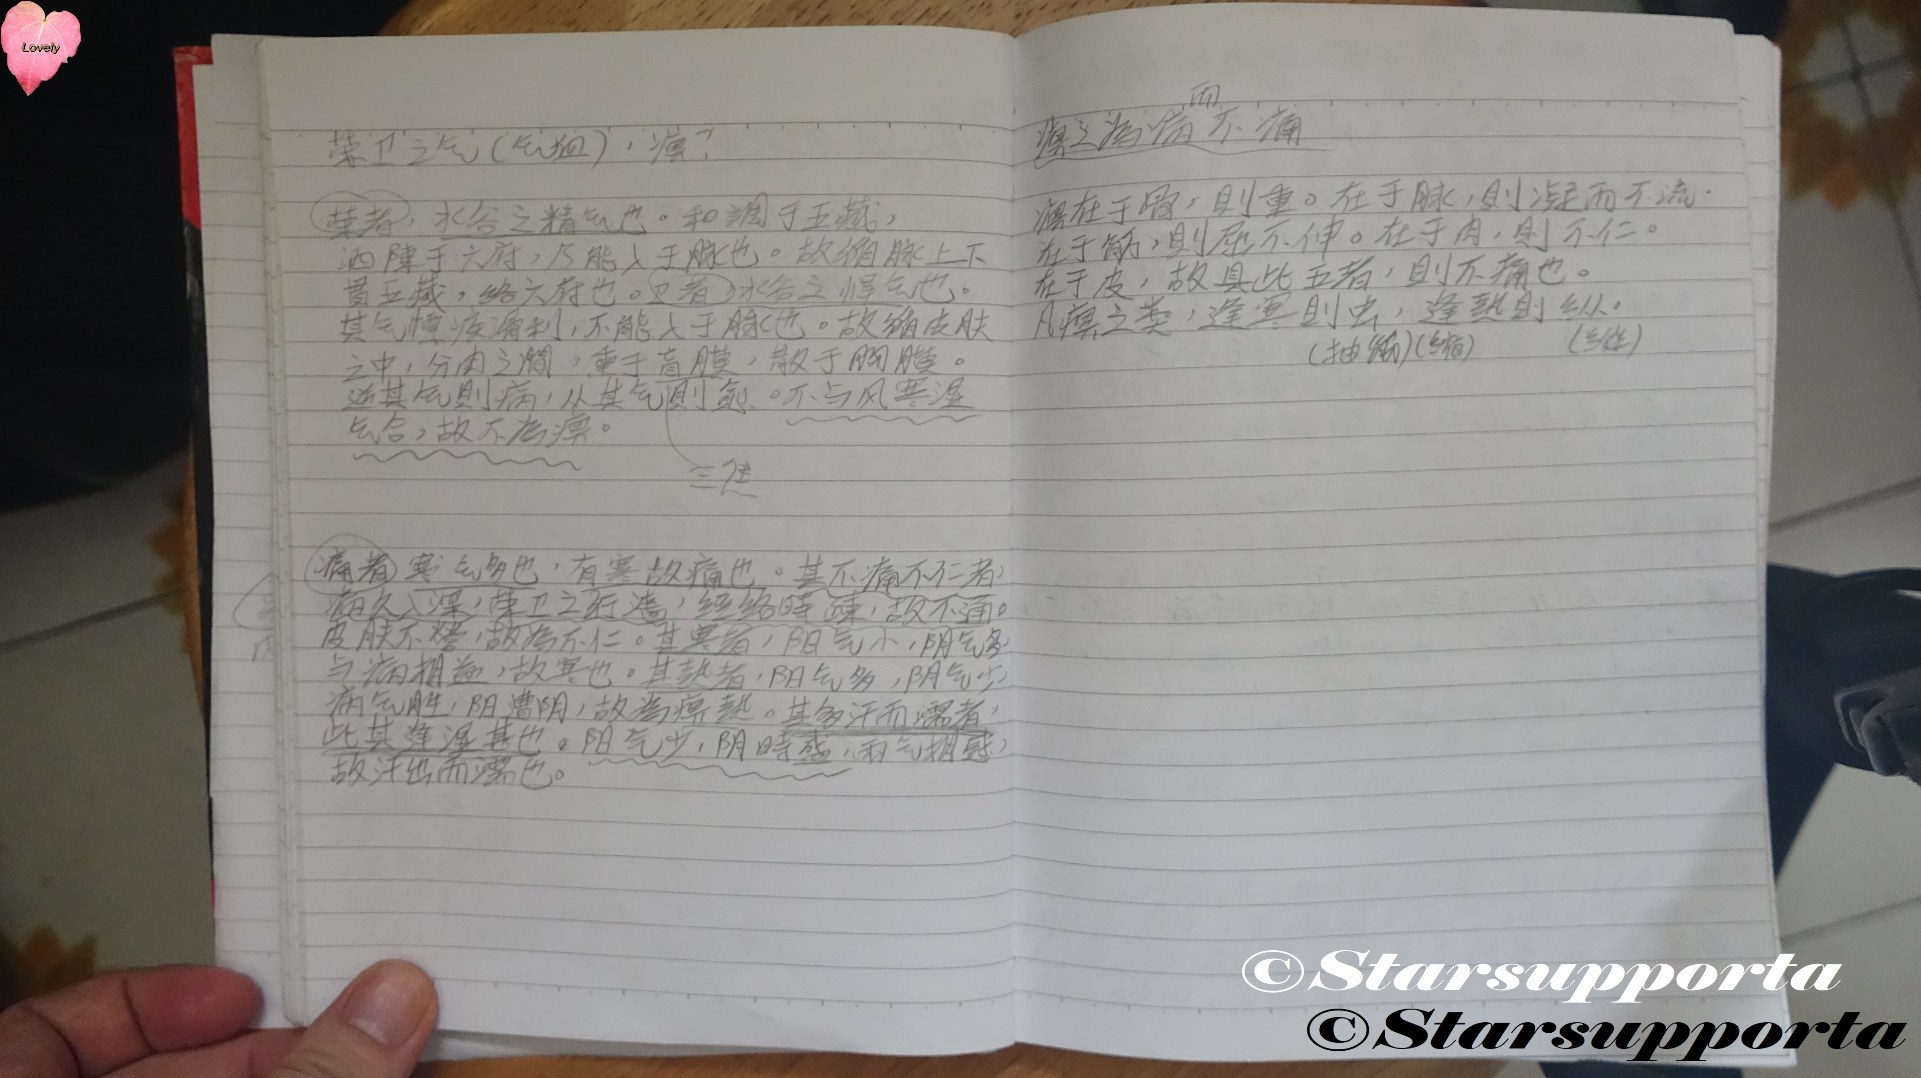 Lovely
荣卫之气(气血),痹?
荣者,水谷之精气也。和調于五藏,
洒陳于六府,乃能入于脉也。故循脉上下
貫五藏,络六府也。卫者,水谷之悍气也。
其气慓疾滑利,不能入于脉也。故循皮肤
之中,分肉之間,熏于肓膜,散于胸膜。
逆其气則病,从其气則愈。不与风寒湿
气合,故不為痹。
三焦
痛者寒气多也,有寒故痛也。其不痛不仁者,
病久入深,荣卫之行濇,经络時疎,故不通。
皮肤不營,故為不仁。其寒者,阳气少,阴气多
与病相益,故寒也。其熱者,阳气多,阴气少
病气胜,阳遭阴,故為痹熱。其多汗而濡者,
此其逢湿甚也。阳气少,阴時盛,兩气相感,
故汗出而濡也。
而
痹之為病不痛
痹在于骨,則重。在于脉,則凝而不流.
在于筋,則屈不伸。在于肉,則不仁。
在于皮,故具此五者,則不痛也。
凡痹之类,逢寒則虫,逢熱則纵.
(抽筋)(缩)
©Starsupporta
©Starsupporta